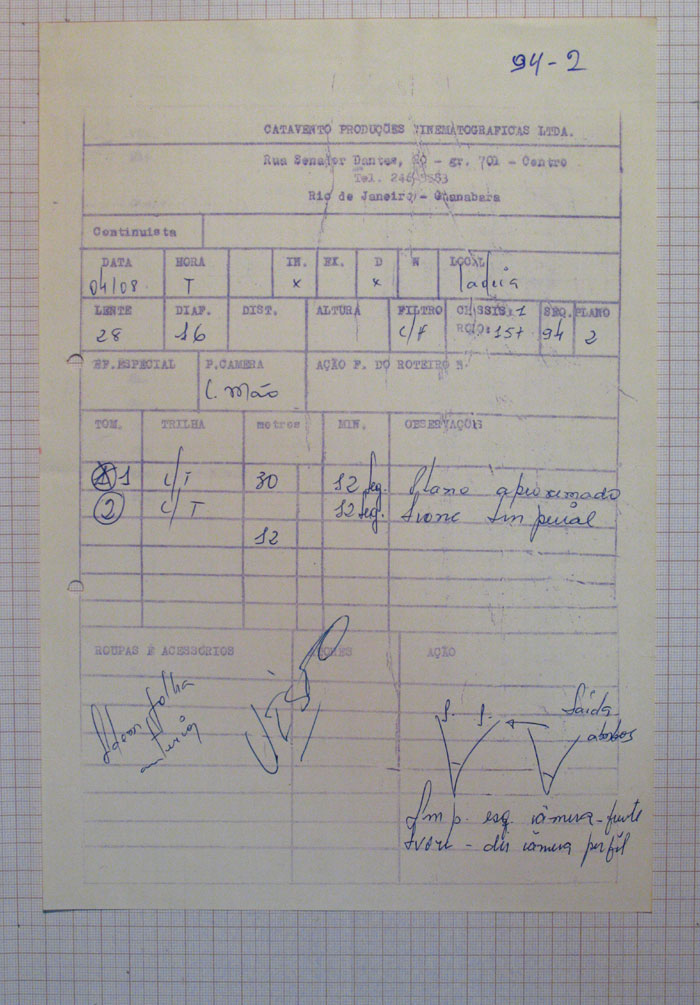 94-2
CATAVENTO PRODUÇÕES CINEMATOGRAFICAS LTDA.
Rua Senador Dantas, - gr. 701 - Centro
Tel.
Rio de Janeiro - Guanabara
Continuista
DATA HORA IN. EX. D N LOCAL
04/08. T x x
LENTE DIAF. DIST. ALTURA FILTRO CHASSIS: 1 SEQ. PLANO
28 16 C/F ROLO: 157 94 2
EF.ESPECIAL P.CAMERA AÇÃO F. DO ROTEIRO
C. Mão
TOM. TRILHA metros MIN. OBSERVAÇÕES
1 C/T 30 12 seg. Plano aproximado
2 C/T 12 seg. Ivone Imperial
12
ROUPAS E ACESSÓRIOS ATORES AÇÃO
folha anterior
I. I. Saída
ambos
Imp. esq. câmera - frente
Ivone - dir câmera perfil